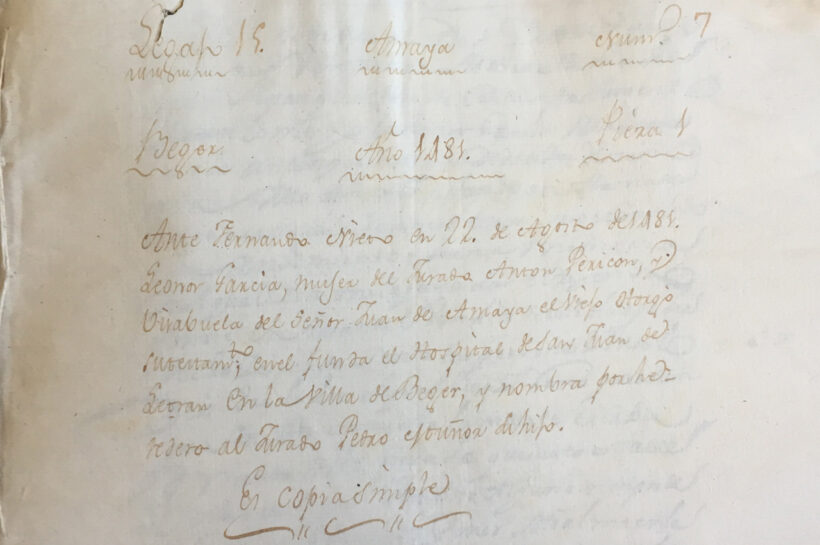 Legajo 15. Amaya Num.º 7
Beger. Año 1481. Pieza 1
Ante Fernando Nieto en 22. de Agosto de 1481.
Leonor Garcia, muger del Jurado Anton Pericon, y
Visabuela del Señor Juan de Amaya el Viejo Otorgó
sutestam.to; enel funda el Hospital de San Juan de
Letran en la Villa de Beger, y nombra por he-
redero al Jurado Pedro suhijo.
Es copia simple